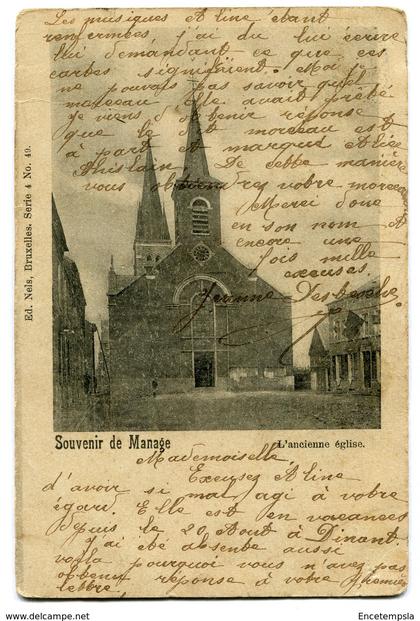 Les musiques d'Aline étant
renfermées j'ai du lui écrire
lui demandant ce que ces
cartes signifiaient. Moi je
ne pouvais pas savoir quel
morceau elle avait prêté
je viens d'obtenir réponse
que le dit morceau est
à part et marqué Alice
Ghislain. De cette manière
vous obtiendrez votre morceau
Merci donc
en son nom et
encore une
fois mille
excuses.
Jeanne Desbèche
Ed. Nels, Bruxelles. Serie 4 No. 49.
Souvenir de Manage
L'ancienne église.
Mademoiselle,
Excusez Aline
d'avoir si mal agi à votre
égard. Elle est en vacances
depuis le 20 Août à Dinant
J'ai été absente aussi
voila pourquoi vous n'avez pas
obtenu réponse à votre première
lettre,
© Encetempsla